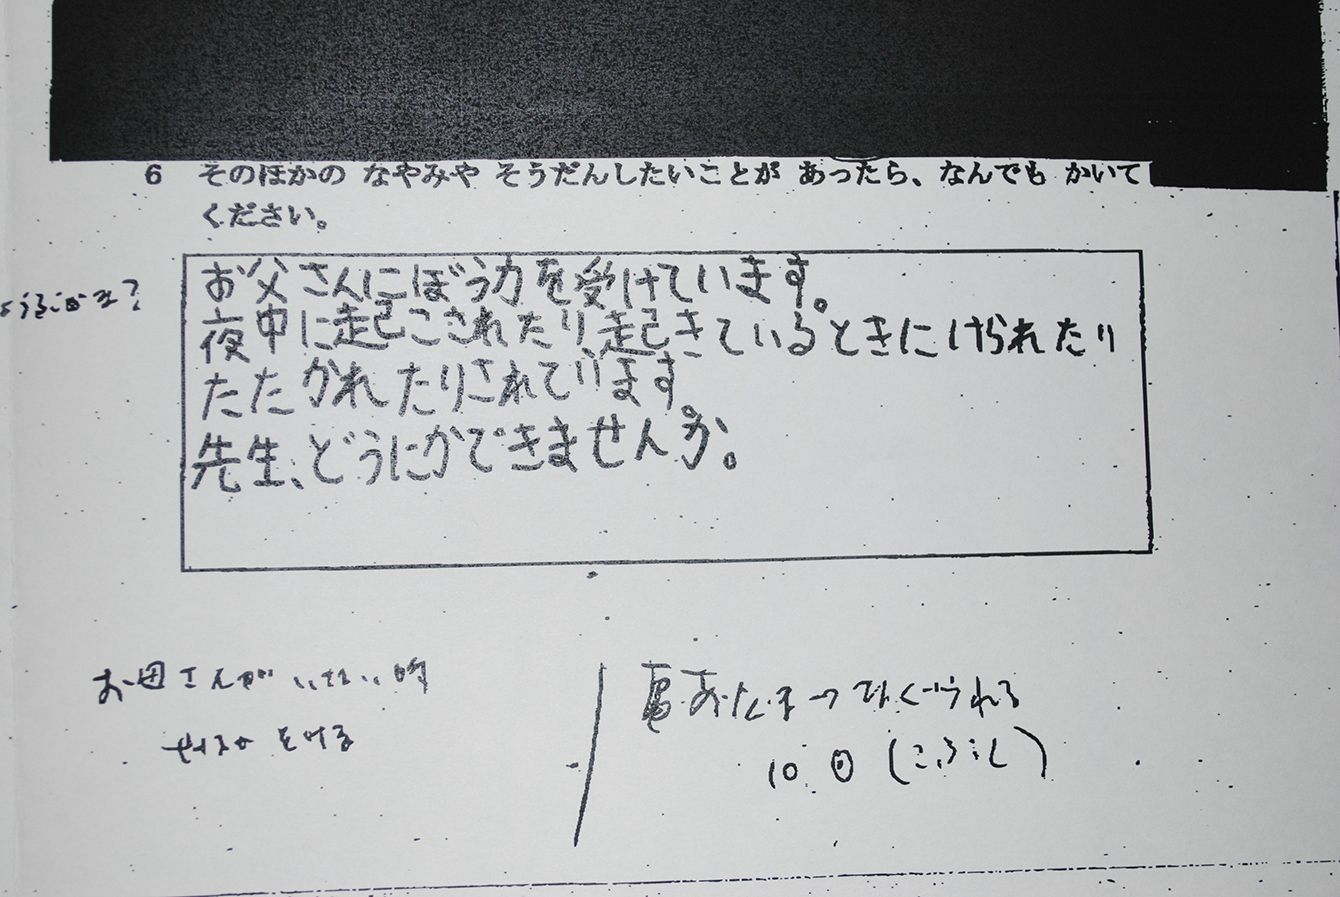 6 そのほかの なやみや そうだんしたいことが あったら、なんでも かいて
ください。
お父さんにぼう力を受けています。
夜中に起こされたり起きているときにけられたり
たたかれたりされています。
先生、どうにかできませんか。
お母さんがいない時
あたま→ なぐられる
10回(こぶし)